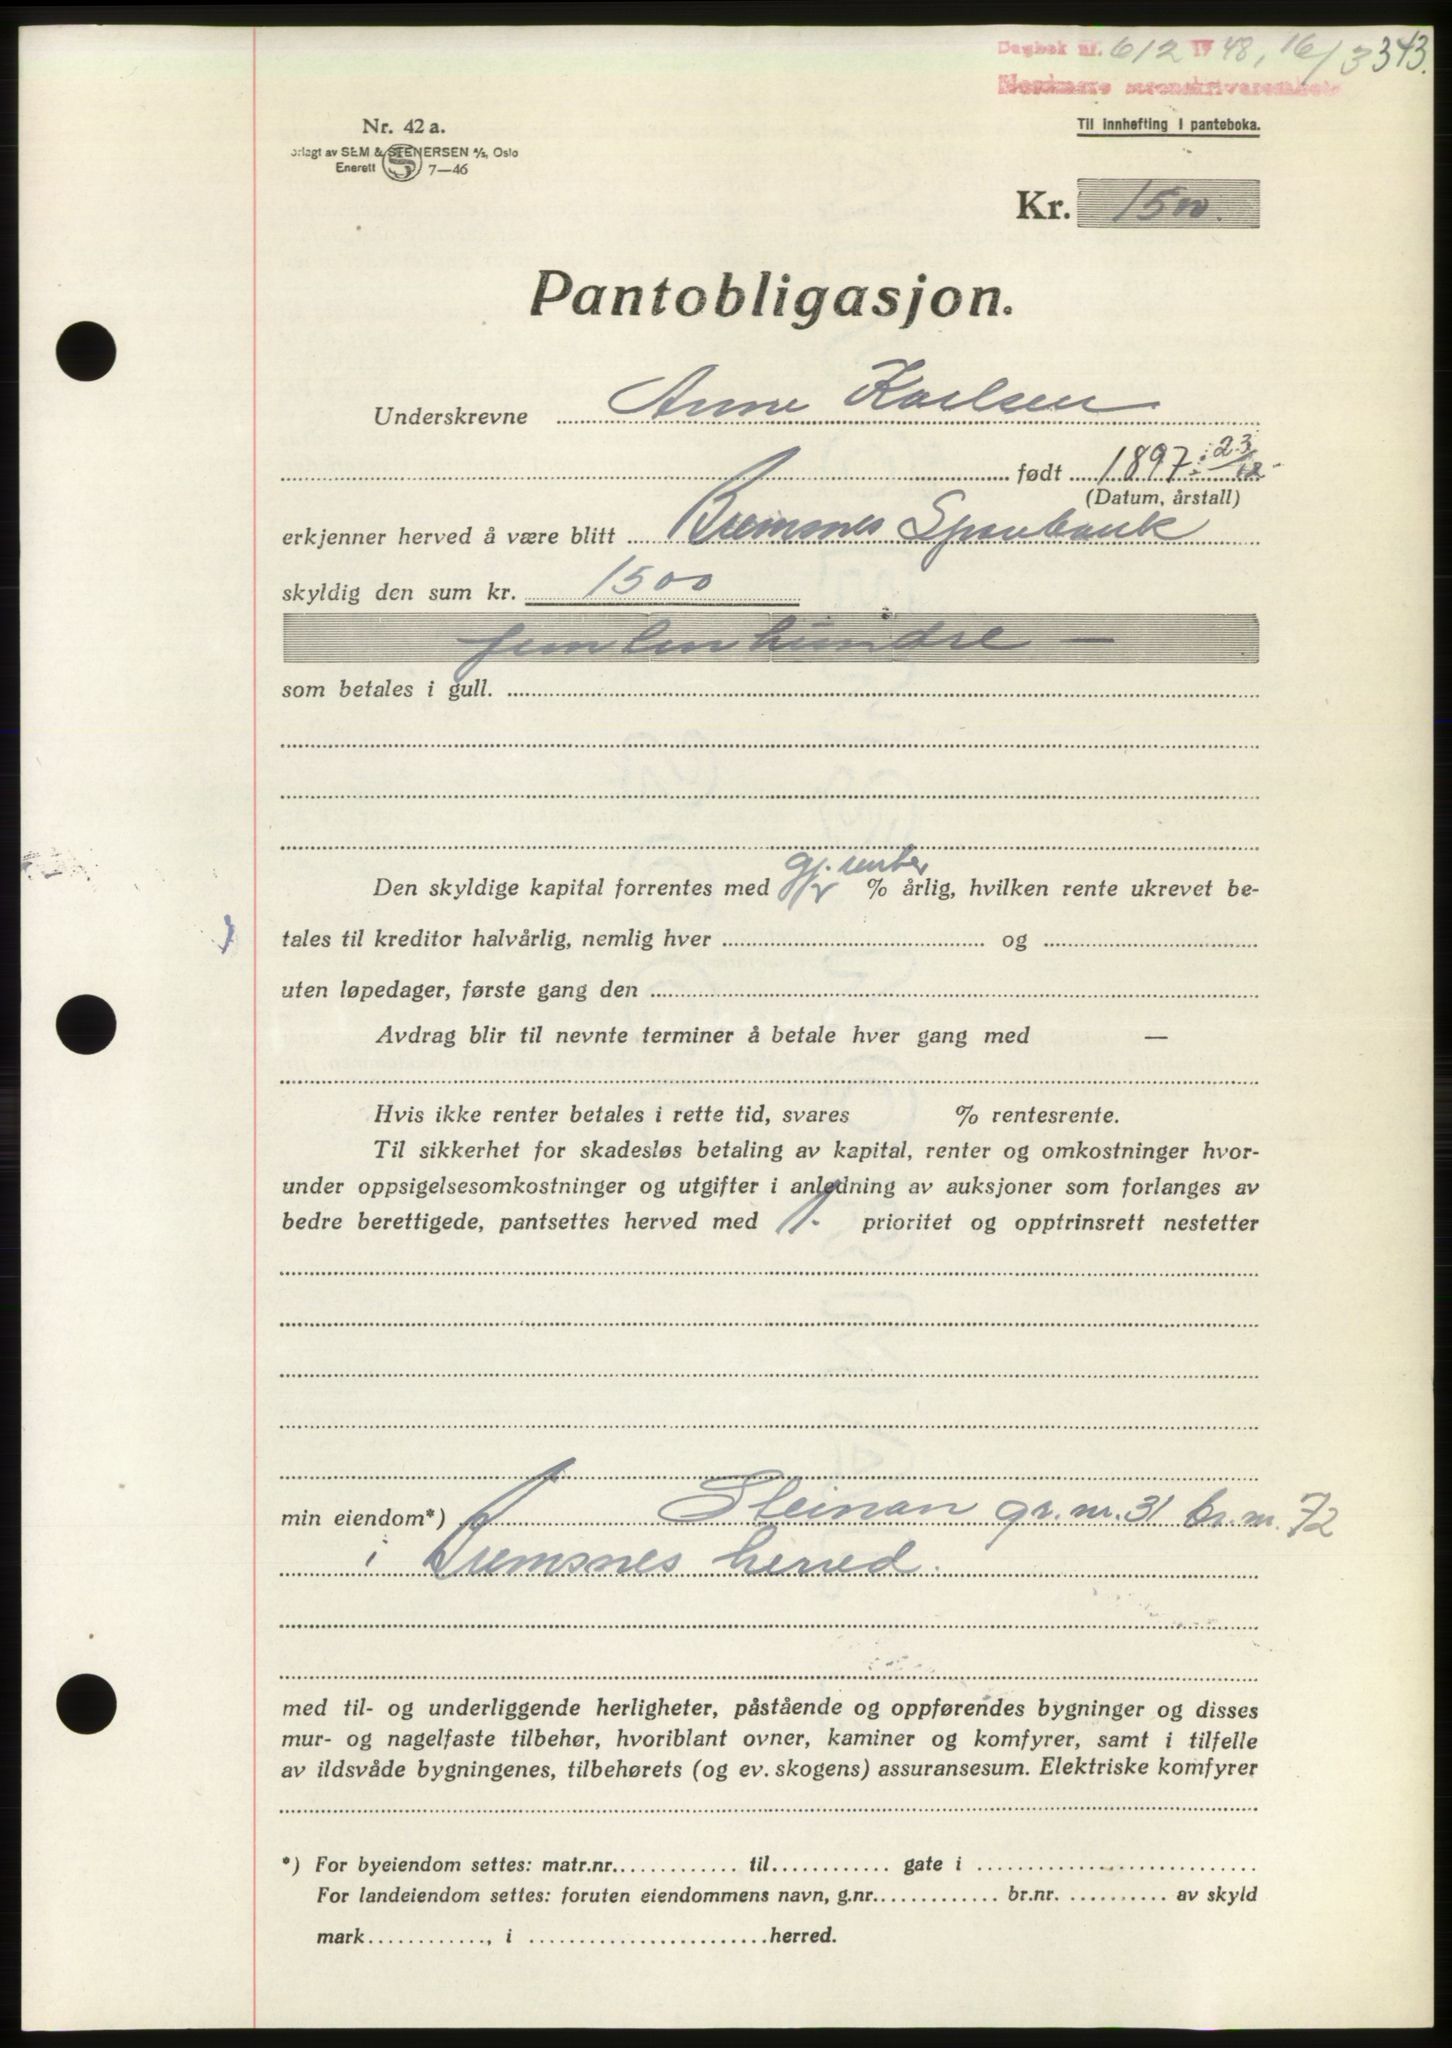 Dagbok nr. 612 1948, 16/3 343.
Nordmøre sorenskriverembete
Nr. 42 a.
Til innhefting i panteboka.
orlagt av SEM & STENERSEN A/S, Oslo
Enerett 7—46
Kr. 1500.
Pantobligasjon.
Underskrevne Anne Karlsen
født 1897 23/12
(Datum, årstall)
erkjenner herved å være blitt Bremsnes Sparebank
skyldig den sum kr. 1500
femtenhundre —
som betales i gull.
gj. renter
Den skyldige kapital forrentes med % årlig, hvilken rente ukrevet be-
tales til kreditor halvårlig, nemlig hver og
uten løpedager, første gang den
Avdrag blir til nevnte terminer å betale hver gang med —
Hvis ikke renter betales i rette tid, svares % rentesrente.
Til sikkerhet for skadesløs betaling av kapital, renter og omkostninger hvor-
under oppsigelsesomkostninger og utgifter i anledning av auksjoner som forlanges av
bedre berettigede, pantsettes herved med 1. prioritet og opptrinsrett nestetter
min eiendom*) Steinan gr. nr. 31 br. nr. 72
i Bremsnes herred.
med til- og underliggende herligheter, påstående og oppførendes bygninger og disses
mur- og nagelfaste tilbehør, hvoriblant ovner, kaminer og komfyrer, samt i tilfelle
av ildsvåde bygningenes, tilbehørets (og ev. skogens) assuransesum. Elektriske komfyrer
*) For byeiendom settes: matr.nr. til gate i
For landeiendom settes: foruten eiendommens navn, g.nr. br.nr. av skyld
mark , i herred.